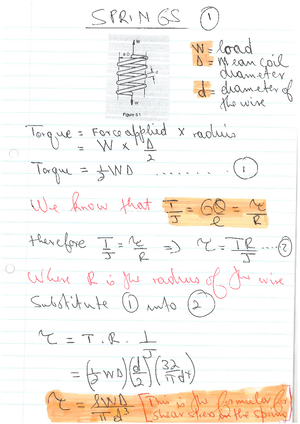 SPRINGS ①
W = load
D = mean coil
diameter
d = diameter of
the wire
W
W
Figure 5.1
Torque = Force applied × radius
= W × D/2
Torque = ½WD ......... ①
We know that T/J = Gθ/l = τ/R
therefore T/J = τ/R => τ = TR/J .....②
Where R is the radius of the wire
Substitute ① into ②
τ = T . R . 1/J
= (½WD)(d/2)(32/πd⁴)
τ = 8WD/πd³ [This is the formular for
shear stress on the spring